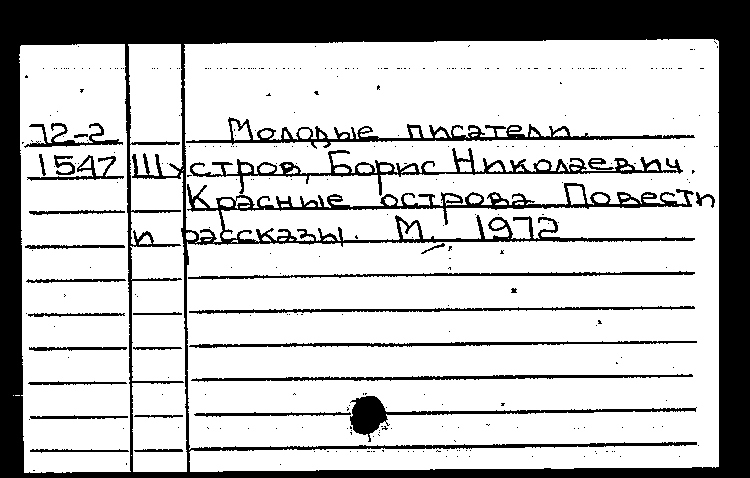 72-2 Молодые писатели.
1547 Шустров, Борис Николаевич.
Красные острова Повести
и рассказы. М., 1972